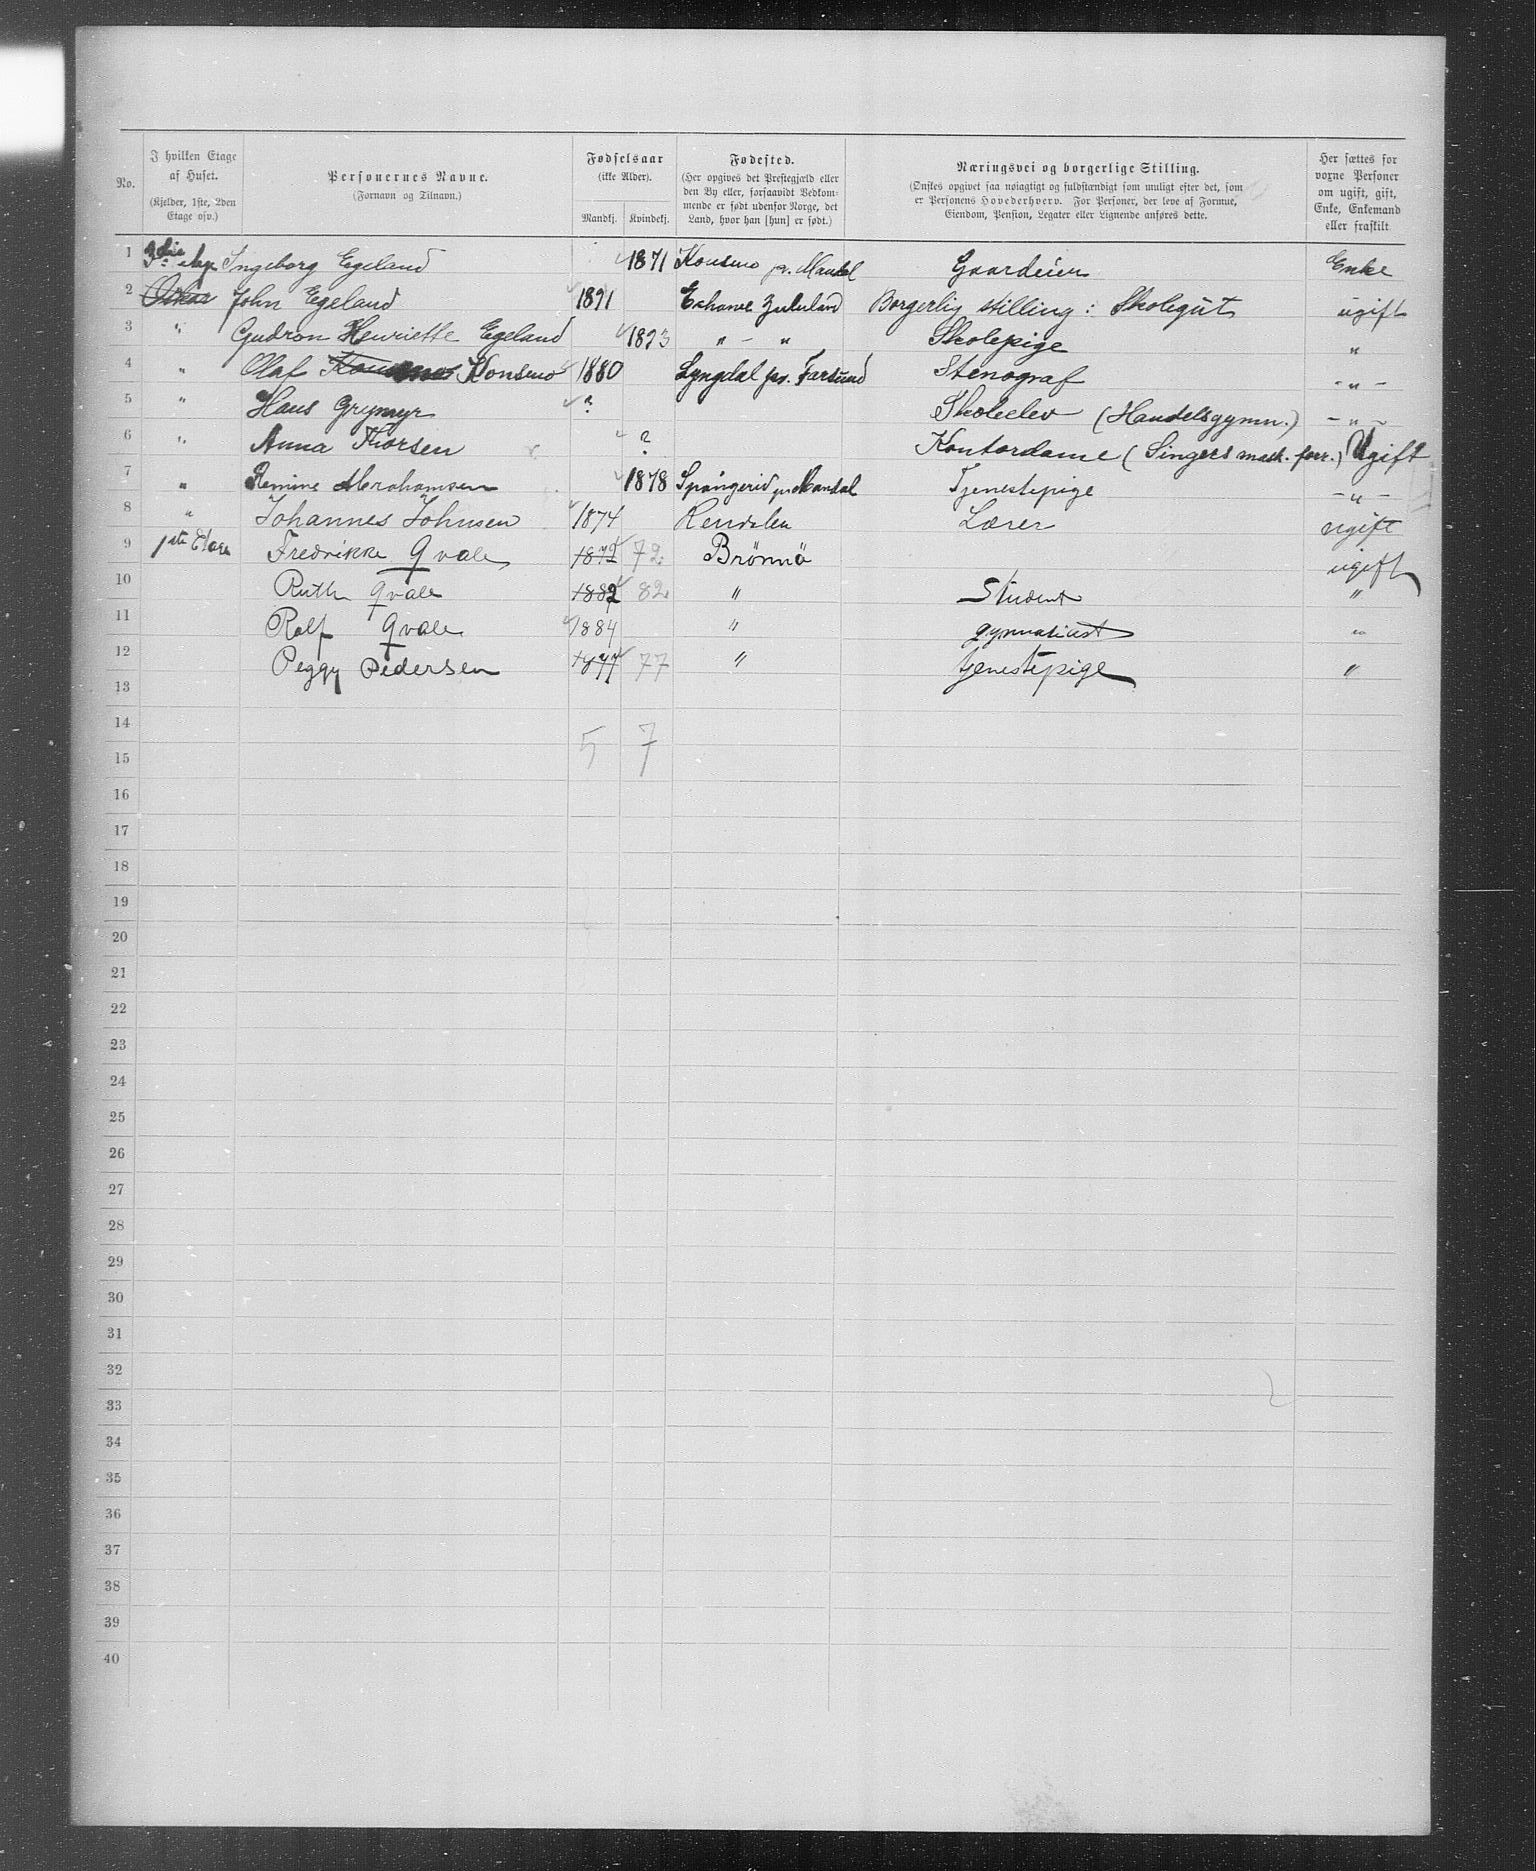 No. | I hvilken Etage af Huset. (Kjelder, 1ste, 2den Etage osv.) | Personernes Navne. (Fornavn og Tilnavn.) | Fødselsaar (ikke Alder). Mandkj. Kvindekj. | Fødested. (Her opgives det Prestegjæld eller den By eller, forsaavidt Vedkommende er født udenfor Norge, det Land, hvor han [hun] er født.) | Næringsvei og borgerlige Stilling. (Ønskes opgivet saa nøiagtigt og fuldstændigt som muligt efter det, som er Personens Hovederhverv. For Personer, der leve af Formue, Eiendom, Pension, Legater eller Lignende anføres dette. | Her sættes for vorne Personer om ugift, gift, Enke, Enkemand eller fraskilt
1 3die Ingeborg Egeland 1871 Konsmo pr. Mandal Gaardeier Enke
2 John Egeland 1891 Eshowe Zululand Borgerlig stilling: Skolegut ugift
3 " Gudron Henriette Egeland 1893 " - " Skolepige "
4 " Olaf Konsmo 1880 Lyngdal pr. Farsund Stenograf - " -
5 " Hans Grymyr ? Skoleelev (Handelsgymn.) - " -
6 " Anna Thorsen ? Kontordame (Singers mask. forr.) Ugift
7 " Remine Abrahamsen 1878 Spangerid pr Mandal Tjenestepige - " -
8 " Johannes Johnsen 1874 Rendalen Lærer ugift
9 1ste Etage Fredrikke Qvale 1872 72 Brönnö ugift
10 Ruth Qvale 1882 82 " Student "
11 Rolf Qvale 1884 " gymnasiast "
12 Peggy Pedersen 1877 77 " tjenestepige "
13
14 5 7
15
16
17
18
19
20
21
22
23
24
25
26
27
28
29
30
31
32
33
34
35
36
37
38
39
40